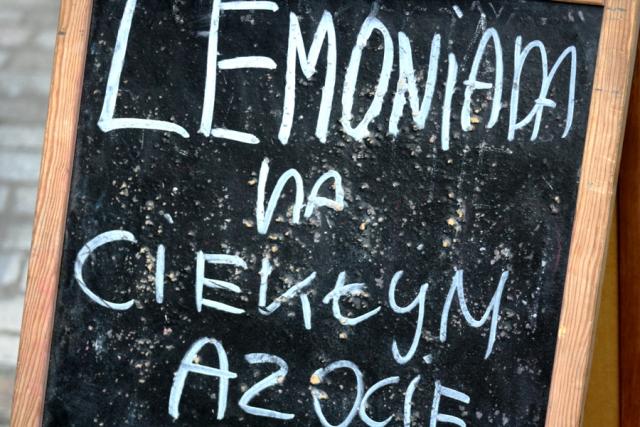 LEMONiADA
NA
CIEKŁYM
AZOCIE